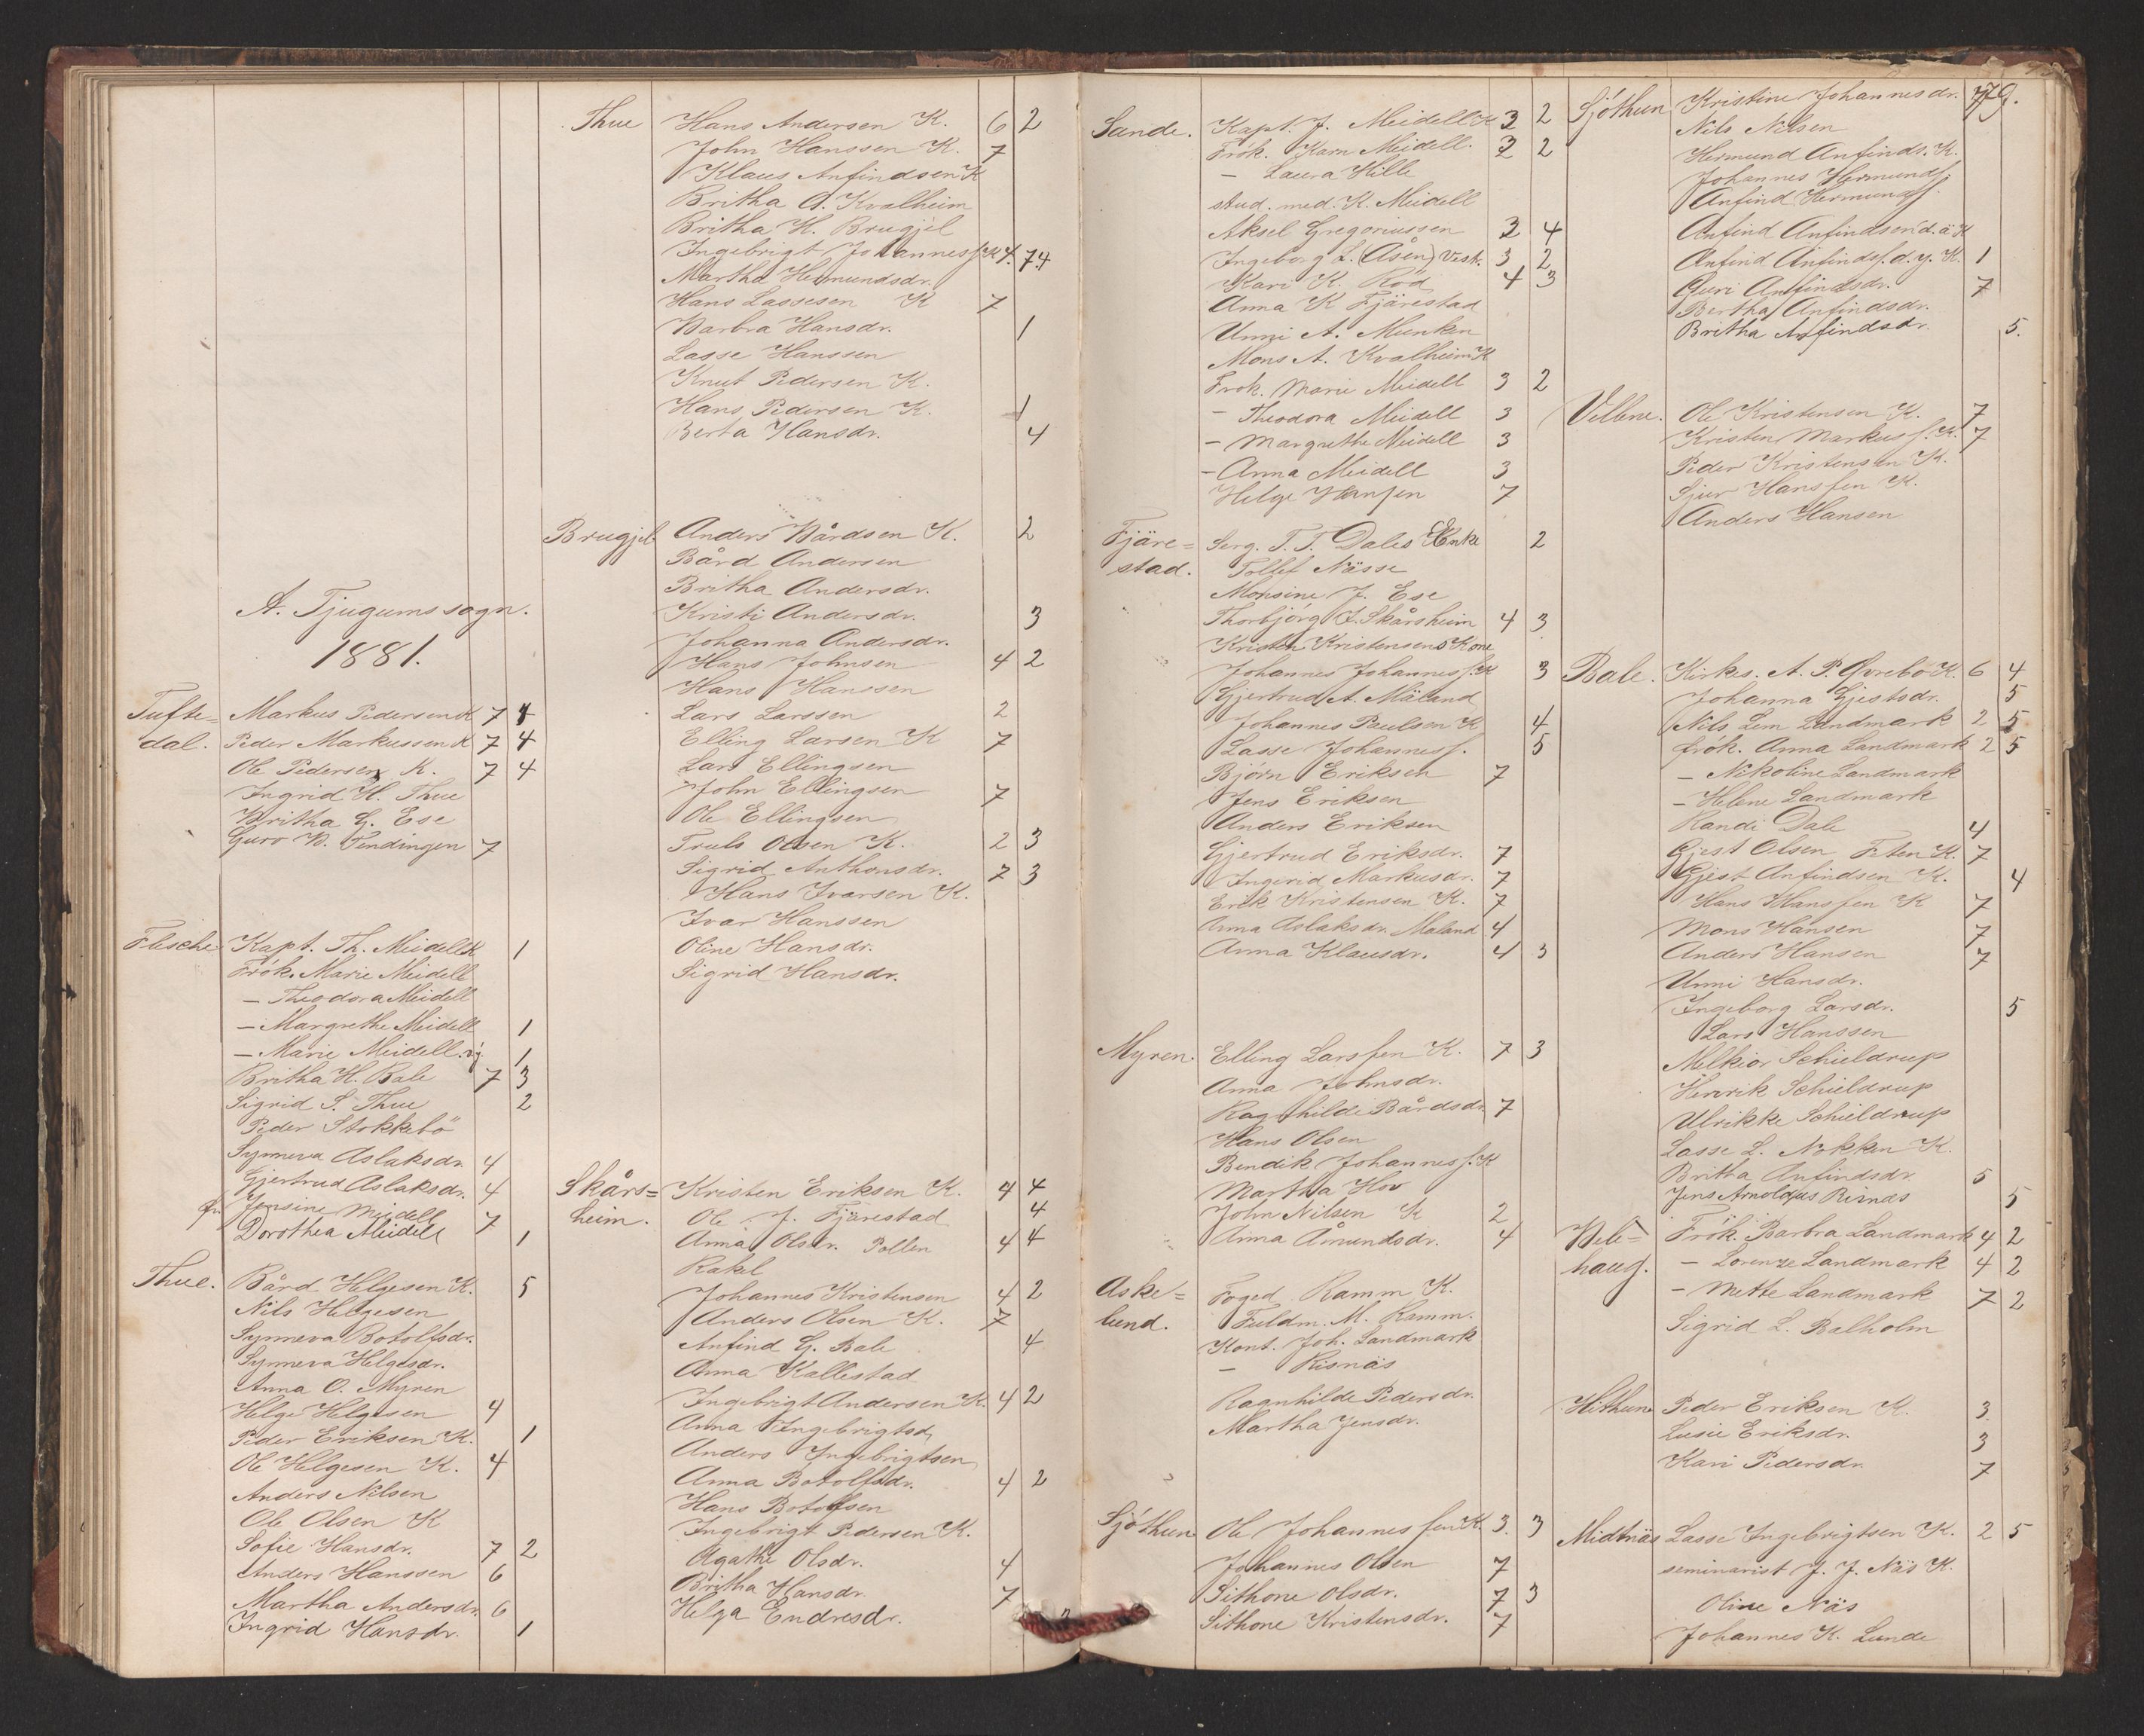 A. Tjugums sogn.
1881.
Tufte= Markus Pedersen K 7 4
dal. Peder Markussen K 7 4
Ole Pedersen K. 7 4
Ingrid H. Thue
Britha G. Ese
Guro N. Tendingen 7
Flesche Kapt. Th. Meidell K 1
Frök. Marie Meidell
— Theodora Meidell
— Margrethe Meidell 1
— Marie Meidell 1
Britha H. Bale 7 3
Sigrid S. Thue 2
Peder Stokkebö
Synneva Aslaksdr. 4
Gjertrud Aslaksdr. 4
fr. Jensine Meidell 7
Dorothea Meidell 1
Thue. Bård Helgesen K. 5
Nils Helgesen
Synneva Botolfsdr.
Synneva Helgesdr.
Anna O. Myren
Helge Helgesen 4
Peder Eriksen K. 1
Ole Helgesen K. 4
Anders Nilsen
Ole Olsen K
Sofie Hansdr. 7 2
Anders Hanssen 6
Martha Andersdr. 6
Ingrid Hansdr. 1
Thue Hans Andersen K. 6 2
John Hanssen K. 7
Klaus Anfindsen K
Britha A. Kvalheim
Britha H. Brugjel
Ingebrigt Johannesf. K 4. 74
Martha Hermundsdr.
Hans Lassesen K 7
Barbra Hansdr. 1
Lasse Hanssen
Knut Pedersen K.
Hans Pedersen K. 1
Berta Hansdr. 4
Brugjel Anders Bårdsen K. 2
Bård Andersen
Britha Andersdr.
Kristi Andersdr. 3
Johanna Andersdr.
Hans Johnsen 4 2
Hans Hanssen
Lars Larssen 2
Elling Larsen K 7
Lars Ellingsen
John Ellingsen 7
Ole Ellingsen
Truls Olsen K. 2 3
Sigrid Anthonsdr. 7 3
Hans Ivarsen K.
Ivar Hanssen
Oline Hansdr.
Sigrid Hansdr.
Skårs= Kristen Eriksen K. 4 4
heim. Ole J. Fjärestad 4
Anna Olsdr. Pollen 4 4
Rakel
Johannes Kristensen 4 2
Anders Olsen K. 7
Anfind G. Bale 4
Anna Kallestad
Ingebrigt Andersen K. 4 2
Anna Ingebrigtsd
Anders Ingebrigtsen
Anna Botolfsdr. 4 2
Hans Botolfsen
Ingebrigt Pedersen K.
Agathe Olsdr. 4
Britha Hansdr. 7
Helga Endresdr.
Sande. Kapt. J. Meidell K 3 2
Frök. Karn Meidell. 3 2
— Laura Hille
stud. med. K. Meidell
Aksel Gregoriussen 3 4
Ingeborg L. (Åsen) Vesk. 3 2
Kari K. Röd 4 3
Anna K Fjärestad
Unni A. Munken
Mons A. Kvalheim K
Frøk. Marie Meidell 3 2
— Theodora Meidell 3
— Margrethe Meidell 3
— Anna Meidell 3
Helge Hansen 7
Fjäre= Serg. T. T. Dales Enke 2
stad. Tollef Nässe
Monsine J. Ese
Thorbjörg J. Skårsheim 4 3
Kristen Kristensens Kone
Johannes Johannesf. K 3
Gjertrud A. Mäland
Johannes Paulsen K 4
Lasse Johannesf. 5
Bjørn Eriksen 7
Jens Eriksen
Anders Eriksen
Gjertrud Eriksdr. 7
Ingerid Markusdr. 7
Erik Kristensen K. 7
Anna Aslaksdr. Maland 4
Anna Klausdr. 4 3
Myren. Elling Larssen K. 7 3
Anna Johnsdr.
Ragnhilde Bårdsdr. 7
Hans Olsen
Bendik Johannesf. K
Martha Hov
John Nilsen K 2
Anna Åmundsdr. 4
Aske= Foged Ramm K.
lund. Fuldm. M. Ramm.
Kont. Joh. Landmark
— Risnäs
Ragnhilde Pedersdr.
Martha Jensdr.
Sjöthun Ole Johannessen K. 3. 3
Johannes Olsen 7
Sithone Olsdr. 7 3
Sithone Kristensdr. 7
79.
Sjöthun Kristine Johannesdr. 7
Nils Nilsen
Hermund Anfinds. K.
Johannes Hermundf.
Anfind Hermundf.
Anfind Anfindsen d. ä K
Anfind Anfindsf. d. y. K. 1
Guri Anfindsdr. 7
Bertha Anfindsdr.
Britha Anfindsdr. 5.
Vellene. Ole Kristensen K. 7
Kristen Markusf. K. 7
Peder Kristensen K.
Sjur Hanssen K.
Anders Hansen
Bale. Kirkes. A. P. Øvrebö K. 6 4
Johanna Gjestsdr. 5
Nils Lem Landmark 2 5
frök. Anna Landmark 2 5
— Nikoline Landmark
— Helene Landmark
Randi Dale 4
Gjest Olsen Feten K. 7
Gjest Anfindsen K. 4
Hans Hanssen K 7
Mons Hansen 7
Anders Hansen 7
Unni Hansdr.
Ingeborg Larsdr. 5
Lars Hanssen
Melkior Schieldrup
Henrik Schieldrup
Ulrikke Schieldrup
Lasse L. Nokken K.
Britha Anfindsdr. 5
Jens Arnoldus Risnäs 5
Frök. Barbra Landmark 4 2
haug. — Lorenze Landmark 4 2
— Mette Landmark 7 2
Sigrid L. Balholm
Hithun Peder Eriksen K. 3.
Lusie Eriksdr. 3
Kari Pedersdr. 7
Midtnäs Lasse Ingebrigtsen K. 2 5
seminarist J. J. Näs K.
Oline Näs
Johannes K. Lunde